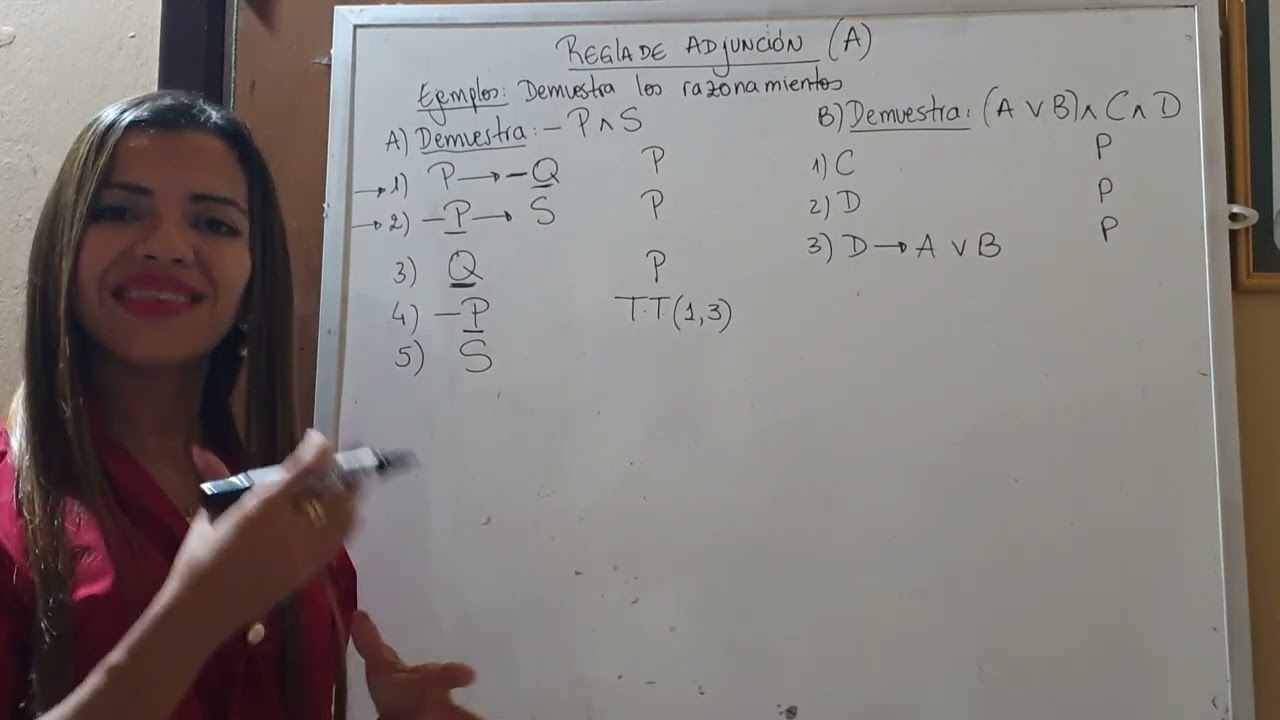 REGLA DE ADJUNCIÓN (A)
Ejemplos: Demuestra los razonamientos
A) Demuestra: – P ∧ S
→ 1) P → – Q P
→ 2) – P → S P
3) Q P
4) – P T.T (1,3)
5) S
B) Demuestra: (A ∨ B) ∧ C ∧ D
1) C P
2) D P
3) D → A ∨ B P